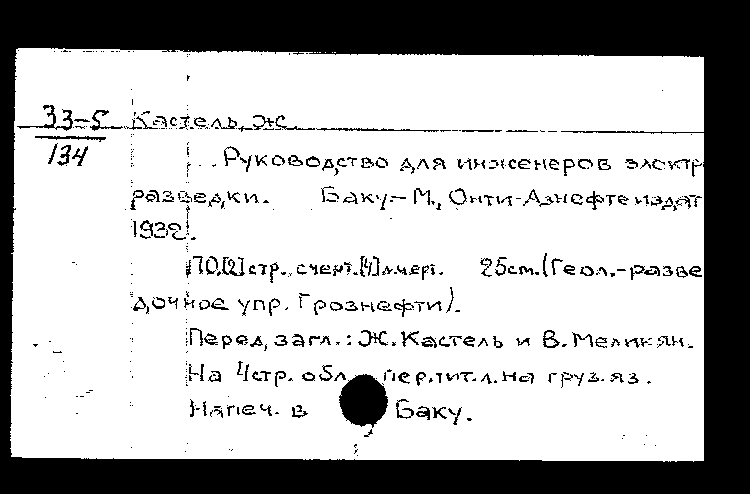 33-5 Кастель, Ж.
134
... Руководство для инженеров электр
разведки. Баку.-М., Онти-Азнефтеиздат
1932.
110,[2]стр., с черт.[4]л.черт. 25см.(Геол.-разве
дочное упр. Грознефти).
Перед загл.: Ж. Кастель и В. Меликян.
На 4стр. обл. пер.тит.л. на груз. яз.
Напеч. в Баку.